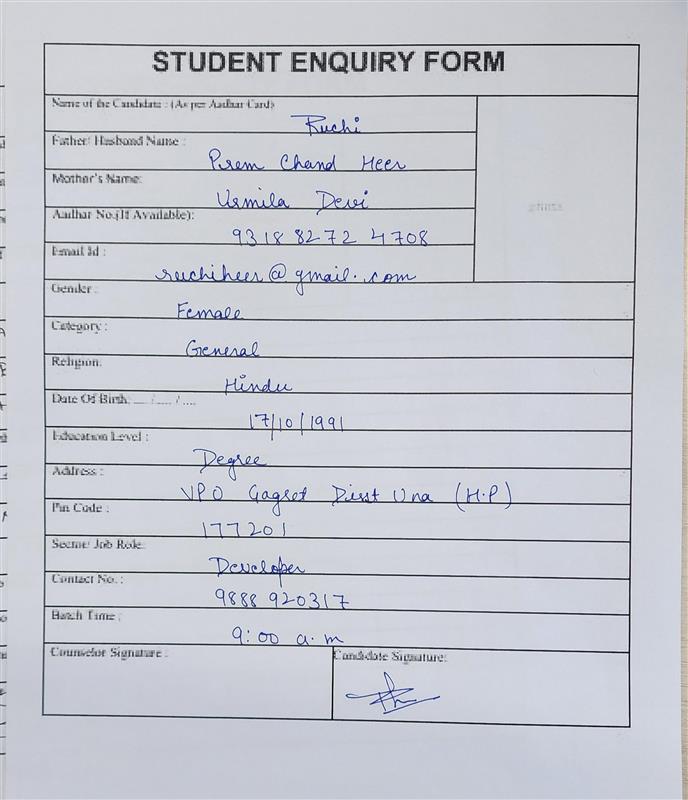 STUDENT ENQUIRY FORM
Name of the Candidate : (As per Aadhar Card)
Ruchi
Father/ Husband Name :
Prem Chand Heer
Mother's Name:
Urmila Devi
Aadhar No.(If Available):
9318 8272 4708
Email Id :
ruchiheer@gmail.com
Gender :
Female
Category :
General
Religion:
Hindu
Date Of Birth: ..../..../....
17/10/1991
Education Level :
Degree
Address :
VPO Gagret Disst Una (H.P)
Pin Code :
177201
Sector/ Job Role:
Developer
Contact No. :
9888 920317
Batch Time :
9:00 a.m
Counselor Signature :
Candidate Signature: